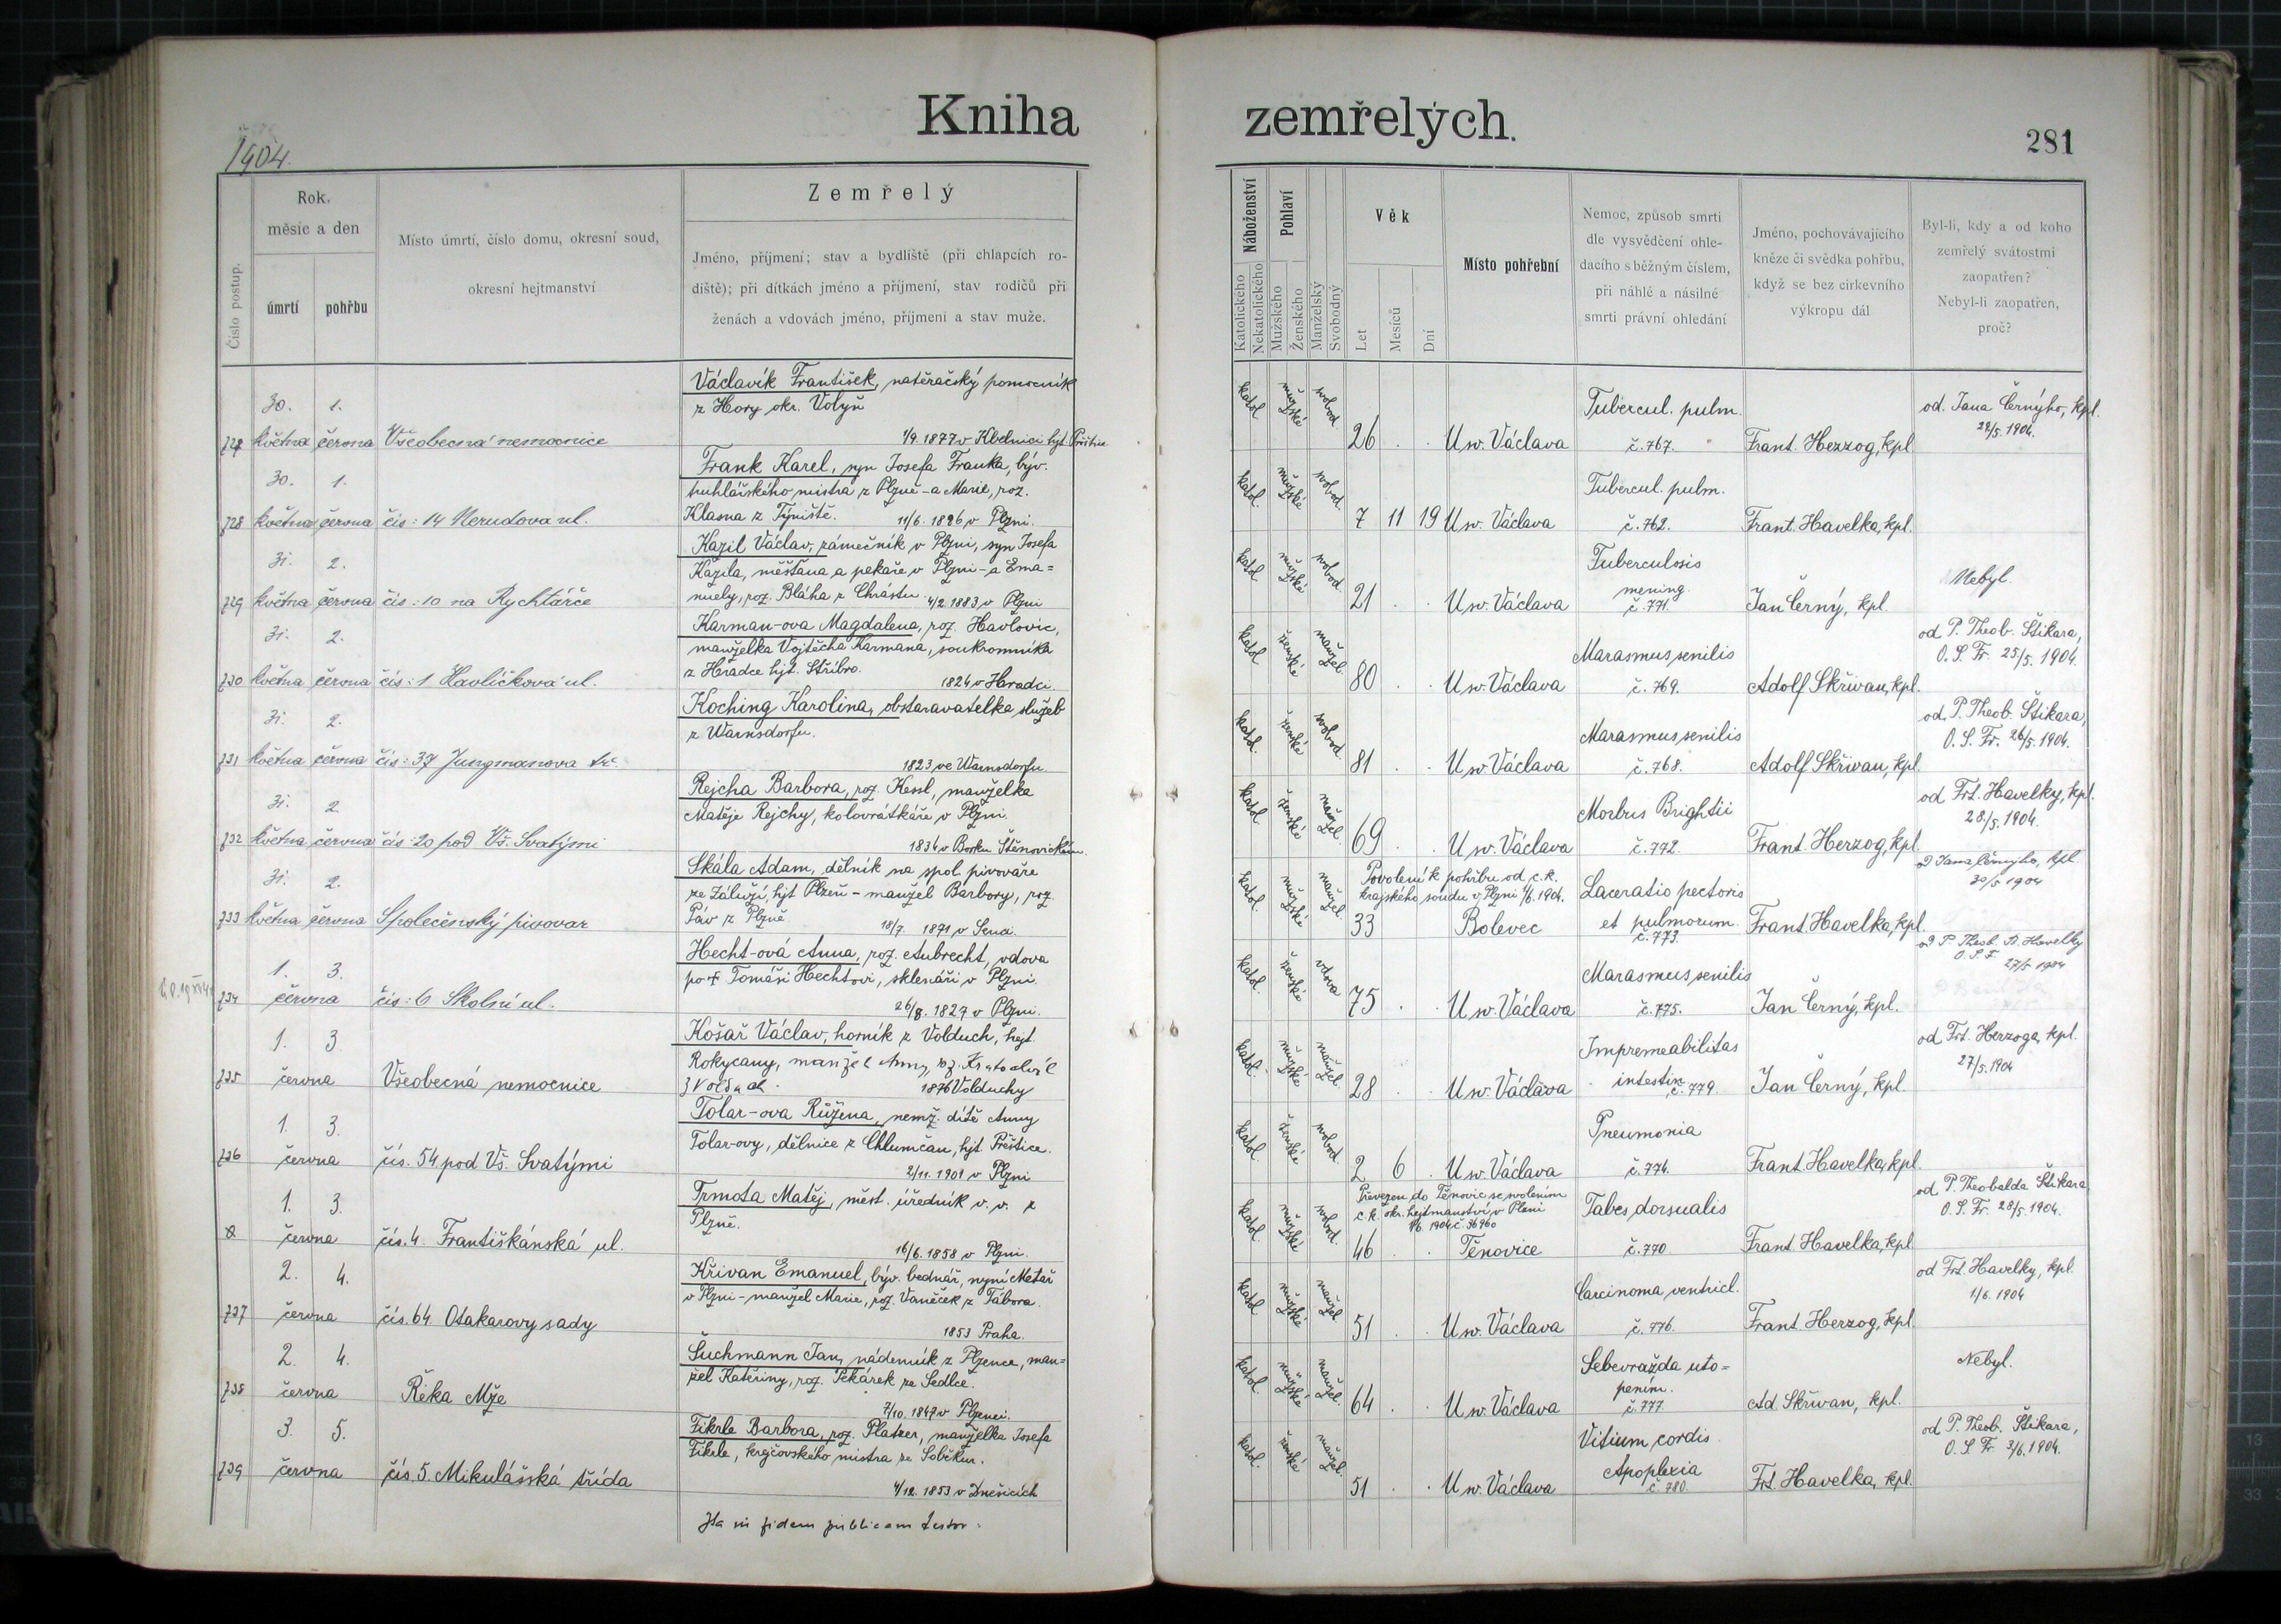 Kniha zemřelých.
1904.
281
Číslo postup.
Rok, měsíc a den
úmrtí
pohřbu
Místo úmrtí, číslo domu, okresní soud,
okresní hejtmanství
Zemřelý
Jméno, příjmení; stav a bydliště (při chlapcích ro-
diště); při dítkách jméno a příjmení, stav rodičů při
ženách a vdovách jméno, příjmení a stav muže.
Náboženství
Katolického
Nekatolického
Pohlaví
Mužského
Ženského
Manželský
Svobodný
Věk
Let
Mesíců
Dní
Místo pohřební
Nemoc, způsob smrti
dle vysvědčení ohle-
dacího s běžným číslem,
při náhlé a násilné
smrti právní ohledání
Jméno, pochovávajícího
kněze či svědka pohřbu,
když se bez církevního
výkropu dál
Byl-li, kdy a od koho
zemřelý svátostmi
zaopatřen?
Nebyl-li zaopatřen,
proč?
30. 1.
května června Všeobecná nemocnice
Václavík František, natěračský pomocník
z Hory okr. Volyň
1/9. 1877 v Kbelnici hejt. Přeštice
katol. mužské svobod. 26 . . U sv. Václava
Tubercul. pulm.
č. 767.
Frant. Herzog, kpl.
od. Jana Černýho, kpl.
29/5. 1904.
30. 1.
728 května června čís: 14 Nerudova ul.
Frank Karel, syn Josefa Franka, býv.
truhlářského mistra z Plzně - a Marie, roz.
Klasna z Týniště. 11/6. 1896 v Plzni.
katol. mužské svobod. 7 11 19 U sv. Václava
Tubercul. pulm.
č. 762.
Frant. Havelka, kpl.
31. 2.
729 května června čís: 10 na Rychtářce
Kazil Václav, zámečník v Plzni, syn Josefa
Kazila, měšťana a pekaře v Plzni - a Ema=
nuely, roz. Bláha z Chrástu. 4/2. 1883 v Plzni
katol. mužské svobod. 21 . . U sv. Václava
Tuberculosis
mening.
č. 771.
Jan Černý, kpl.
Nebyl.
31. 2.
730 května června čís: 1 Havlíčková ul.
Karman-ova Magdalena, roz. Havlovic,
manželka Vojtěcha Karmana, soukromníka
z Hradce hjt. Stříbro. 1824 v Hradci.
katol. ženské manžel. 80 . . U sv. Václava
Marasmus senilis
č. 769.
Adolf Skřivan, kpl.
od P. Theob. Štikara,
O. S. Fr. 25/5. 1904.
31. 2.
731 května června čís: 37 Jungmanova tř.
Koching Karolina, obstaravatelka služeb
z Warnsdorfu.
1823 ve Warnsdorfu.
katol. ženské svobod. 81 . . U sv. Václava
Marasmus senilis
č. 768.
Adolf Skřivan, kpl.
od. P. Theob. Štikara,
O. S. Fr. 26/5. 1904.
31. 2.
732 května června čís: 20 pod Vš. Svatými
Rejcha Barbora, roz. Kessl, manželka
Matěje Rejchy, kolovrátkáře v Plzni.
1834 v Borku Štěnovickém.
katol. ženské manžel. 69 . . U sv. Václava
Morbus Brightii
č. 772.
Frant. Herzog, kpl.
od Frt. Havelky, kpl.
28/5. 1904.
31. 2.
733 května června Společenský pivovar
Skála Adam, dělník na spol. pivováře
ze Záluží, hjt Plzeň - manžel Barbory, roz.
Páv z Plzně. 18/7. 1871 v Senci.
Povolení k pohřbu od c. k.
krajského soudu v Plzni 1/6. 1904.
katol. mužské manžel. 33 Bolevec
Laceratio pectoris
et pulmorum.
č. 773.
Frant. Havelka, kpl.
od Jana Černýho, kpl.
30/5 1904
1. 3.
734 června čís: 6 Školní ul.
Hecht-ová Anna, roz. Aubrecht, vdova
po † Tomáši Hechtovi, sklenáři v Plzni.
26/8. 1829 v Plzni.
katol. ženské vdova 75 . . U sv. Václava
Marasmus senilis
č. 775.
Jan Černý, kpl.
od P. Theob. Havelky
O. S. F. 27/5 1904
1. 3
735 června Všeobecná nemocnice
Košař Václav, horník z Volduch, hejt.
Rokycany, manžel Anny, roz.
1876 Volduchy
katol. mužské manžel. 28 . . U sv. Václava
Impremeabilitas
intestin. č. 779.
Jan Černý, kpl.
od Frt. Herzoga, kpl.
27/5. 1904
1. 3.
736 června čís. 54 pod Vš. Svatými
Tolar-ova Růžena, nemž. dítě Anny
Tolar-ovy, dělnice z Chlumčan, hjt. Přeštice.
2/11. 1901 v Plzni
katol. ženské svobod. 2 6 . U sv. Václava
Pneumonia
č. 774.
Frant. Havelka, kpl.
1. 3.
června čís. 4. Františkánská ul.
Trmota Matěj, měst. úředník v. v. z
Plzně.
16/6. 1858 v Plzni.
Převezen do Těnovic se svolením
c. k. okr. hejtmanství v Plzni
1/6. 1904 č. 36960
katol. mužské svobod. 46 . . Těnovice
Tabes dorsualis
č. 770
Frant. Havelka, kpl
od P. Theobalda Štikara
O. S. Fr. 28/5. 1904.
2. 4.
737 června čís. 64 Otakarovy sady
Křivan Emanuel, býv. bednář, nyní Metař
v Plzni - manžel Marie, roz. Vaněček z Tábora.
1853 Praha.
katol. mužské manžel. 51 . . U sv. Václava
Carcinoma ventricl.
č. 776.
Frant. Herzog, kpl.
od Frt. Havelky, kpl.
1/6. 1904
2. 4.
738 června Řeka Mže
Šuchmann Jan, nádeník z Plzence, man=
žel Kateřiny, roz. Pekárek ze Sedlce.
7/10. 1847 v Plzenci.
katol. mužské manžel. 64 . . U sv. Václava
Sebevražda uto=
pením.
č. 777
Ad. Skřivan, kpl.
Nebyl.
3. 5.
739 června čís. 5. Mikulášská třída
Fikrle Barbora, roz. Platzer, manželka Josefa
Fikrle, krejčovského mistra ze Soběkur.
4/12. 1853 v Dnešicích
katol. ženské manžel. 51 . . U sv. Václava
Vitium cordis
Apoplexia
č. 780.
Frt. Havelka, kpl.
od P. Theob. Štikara,
O. S. Fr. 3/6. 1904.
Ita in fidem publicam testor.